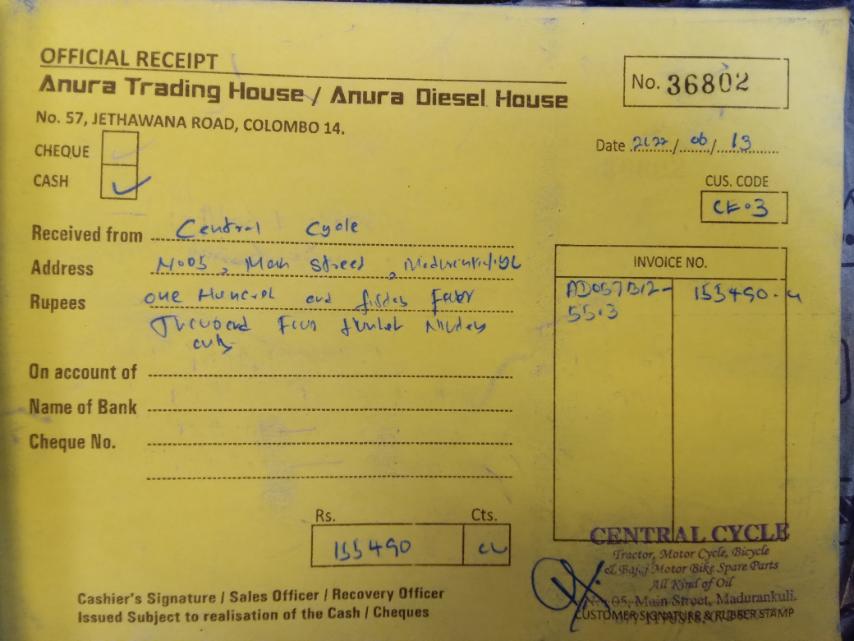 OFFICIAL RECEIPT
Anura Trading House / Anura Diesel House
No. 36802
No. 57, JETHAWANA ROAD, COLOMBO 14.
Date 2022/06/13
CHEQUE
CASH ✓
CUS. CODE
CE-3
Received from Central Cycle
Address No 05, Main Street,
Rupees one Hundred and
Thousand Four Hundred
only
INVOICE NO.
155490
On account of
Name of Bank
Cheque No.
Rs. Cts.
155490
CENTRAL CYCLE
Tractor, Motor Cycle, Bicycle
& Bajaj Motor Bike Spare Parts
All Kind of Oil
No. 05, Main Street, Madurankuli.
Cashier's Signature / Sales Officer / Recovery Officer
Issued Subject to realisation of the Cash / Cheques
CUSTOMER SIGNATURE & RUBBER STAMP